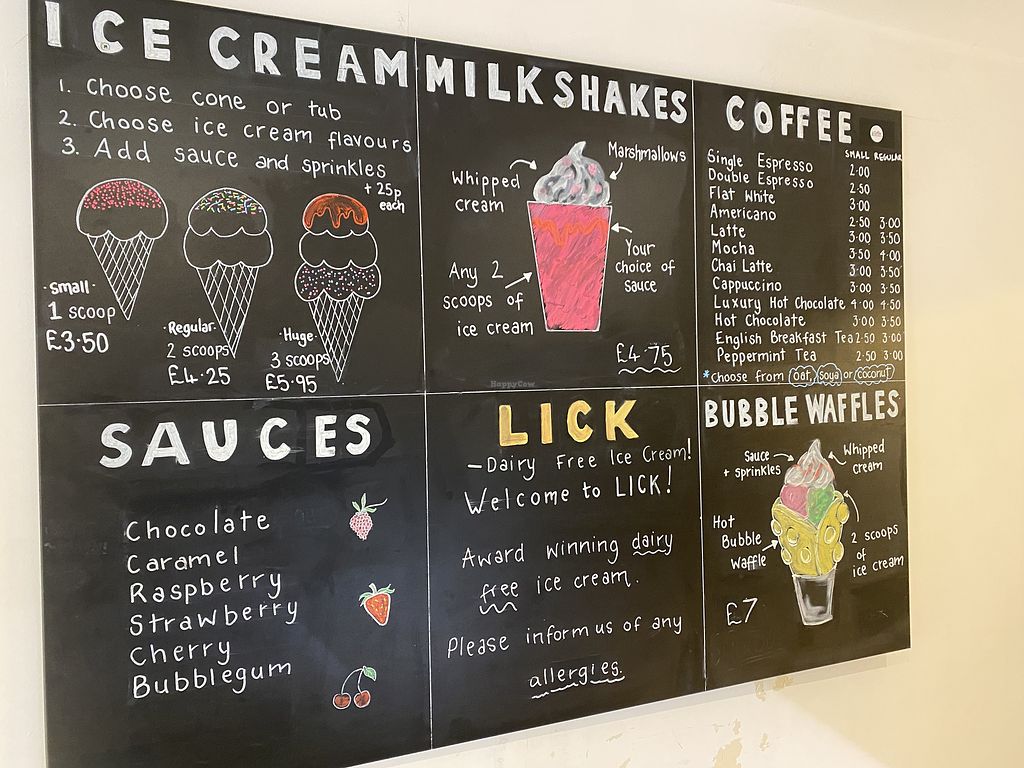 ICE CREAM
1. Choose cone or tub
2. Choose ice cream flavours
3. Add sauce and sprinkles
+ 25p
each
·Small·
1 scoop
£3·50
·Regular·
2 scoops
£4·25
·Huge·
3 scoops
£5·95
MILKSHAKES
Marshmallows
Whipped
cream
Your
choice of
sauce
Any 2
scoops of
ice cream
£4·75
COFFEE
SMALL REGULAR
Single Espresso 2·00
Double Espresso 2·50
Flat White 3·00
Americano 2·50 3·00
Latte 3·00 3·50
Mocha 3·50 4·00
Chai Latte 3·00 3·50
Cappuccino 3·00 3·50
Luxury Hot Chocolate 4·00 4·50
Hot Chocolate 3·00 3·50
English Breakfast Tea 2·50 3·00
Peppermint Tea 2·50 3·00
*Choose from Oat, Soya or Coconut
SAUCES
Chocolate
Caramel
Raspberry
Strawberry
Cherry
Bubblegum
LICK
- Dairy Free Ice Cream!
Welcome to LICK!
Award winning dairy
free ice cream.
Please inform us of any
allergies.
BUBBLE WAFFLES
Sauce
+ sprinkles
Whipped
cream
Hot
Bubble
Waffle
2 scoops
of
ice cream
£7
HappyCow